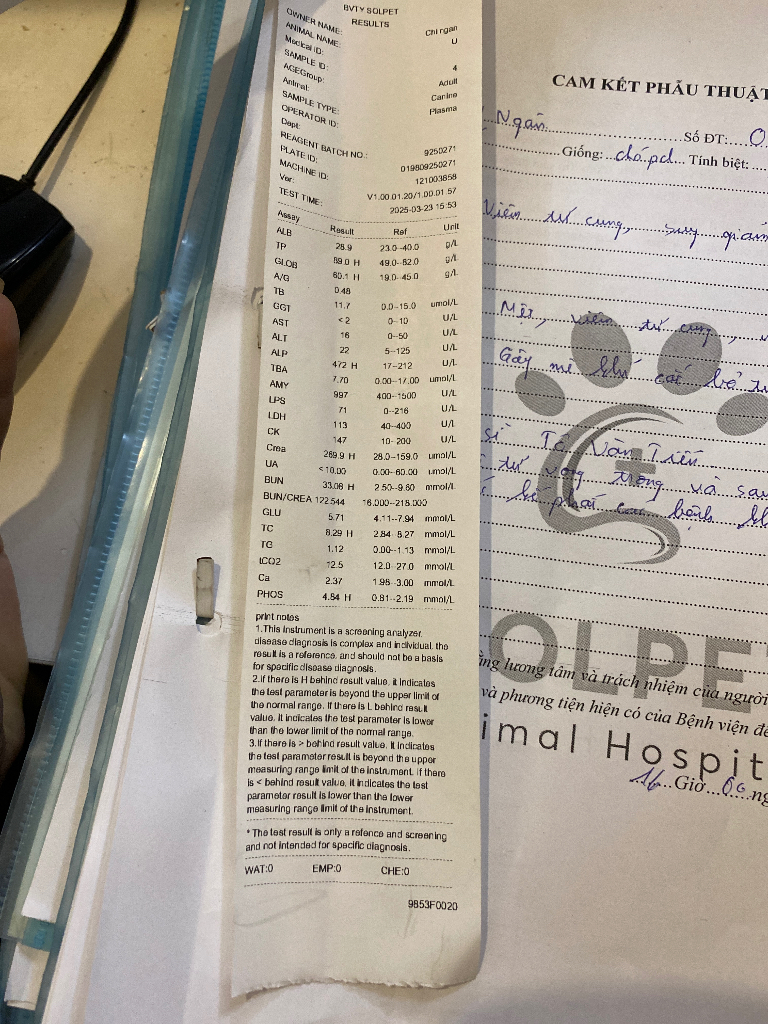 BVTY SOLPET
RESULTS
OWNER NAME: Chi ngan
ANIMAL NAME: U
Medical ID:
SAMPLE ID: 4
AGEGroup: Adult
Animal: Canine
SAMPLE TYPE: Plasma
OPERATOR ID:
Dept:
REAGENT BATCH NO.: 9250271
PLATE ID: 019809250271
MACHINE ID: 121003858
Ver: V1.00.01.20/1.00.01.57
TEST TIME: 2025-03-23 15:53
Assay Result Ref Unit
ALB 28.9 23.0--40.0 g/L
TP 89.0 H 49.0--82.0 g/L
GLOB 60.1 H 19.0--45.0 g/L
A/G 0.48
TB 11.7 0.0--15.0 umol/L
GGT <2 0--10 U/L
AST 16 0--50 U/L
ALT 22 5--125 U/L
ALP 472 H 17--212 U/L
TBA 7.70 0.00--17.00 umol/L
AMY 997 400--1500 U/L
LPS 71 0--216 U/L
LDH 113 40--400 U/L
CK 147 10--200 U/L
Crea 269.9 H 28.0--159.0 umol/L
UA <10.00 0.00--60.00 umol/L
BUN 33.08 H 2.50--9.60 mmol/L
BUN/CREA 122.544 16.000--218.000
GLU 5.71 4.11--7.94 mmol/L
TC 8.29 H 2.84--8.27 mmol/L
TG 1.12 0.00--1.13 mmol/L
tCO2 12.5 12.0--27.0 mmol/L
Ca 2.37 1.98--3.00 mmol/L
PHOS 4.84 H 0.81--2.19 mmol/L
print notes
1.This instrument is a screening analyzer.
disease diagnosis is complex and individual. the
result is a reference. and should not be a basis
for specific disease diagnosis.
2.If there is H behind result value. it indicates
the test parameter is beyond the upper limit of
the normal range. If there is L behind result
value. it indicates the test parameter is lower
than the lower limit of the normal range.
3.If there is > behind result value. it indicates
the test parameter result is beyond the upper
measuring range limit of the instrument. if there
is < behind result value. it indicates the test
parameter result is lower than the lower
measuring range limit of the instrument.
* The test result is only a refence and screening
and not intended for specific diagnosis.
WAT:0 EMP:0 CHE:0
9853F0020
CAM KẾT PHẪU THUẬT
Ngân Số ĐT: 0
Giống: chó pd Tính biệt:
Viêm tử cung, suy giảm
Mệt, viêm tử cung,
Gây mê khi cắt bỏ tử
sĩ Tô Văn Tiến
tử vong trong và sau
bị phát
OLPET
lương tâm và trách nhiệm của người
và phương tiện hiện có của Bệnh viện để
imal Hospit
16 Giờ 00 ng